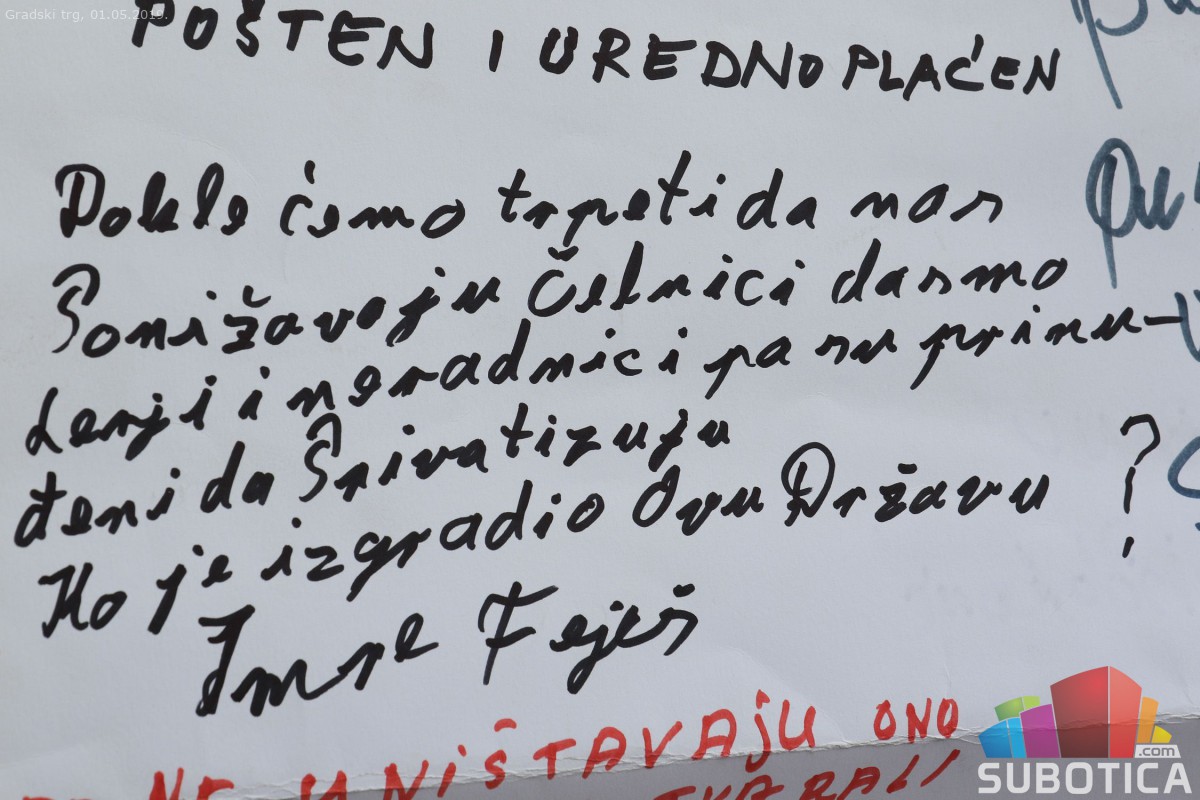 Gradski trg, 01.05.2019.
POŠTEN I UREDNO PLAĆEN
Dokle ćemo trpeti da nas
Ponižavaju Čelnici da smo
Lenji i neradnici pa su prinu-
đeni da Privatizuju
Ko je izgradio Ovu Državu ?
Imre Feješ
NE ONO
.com
SUBOTICA